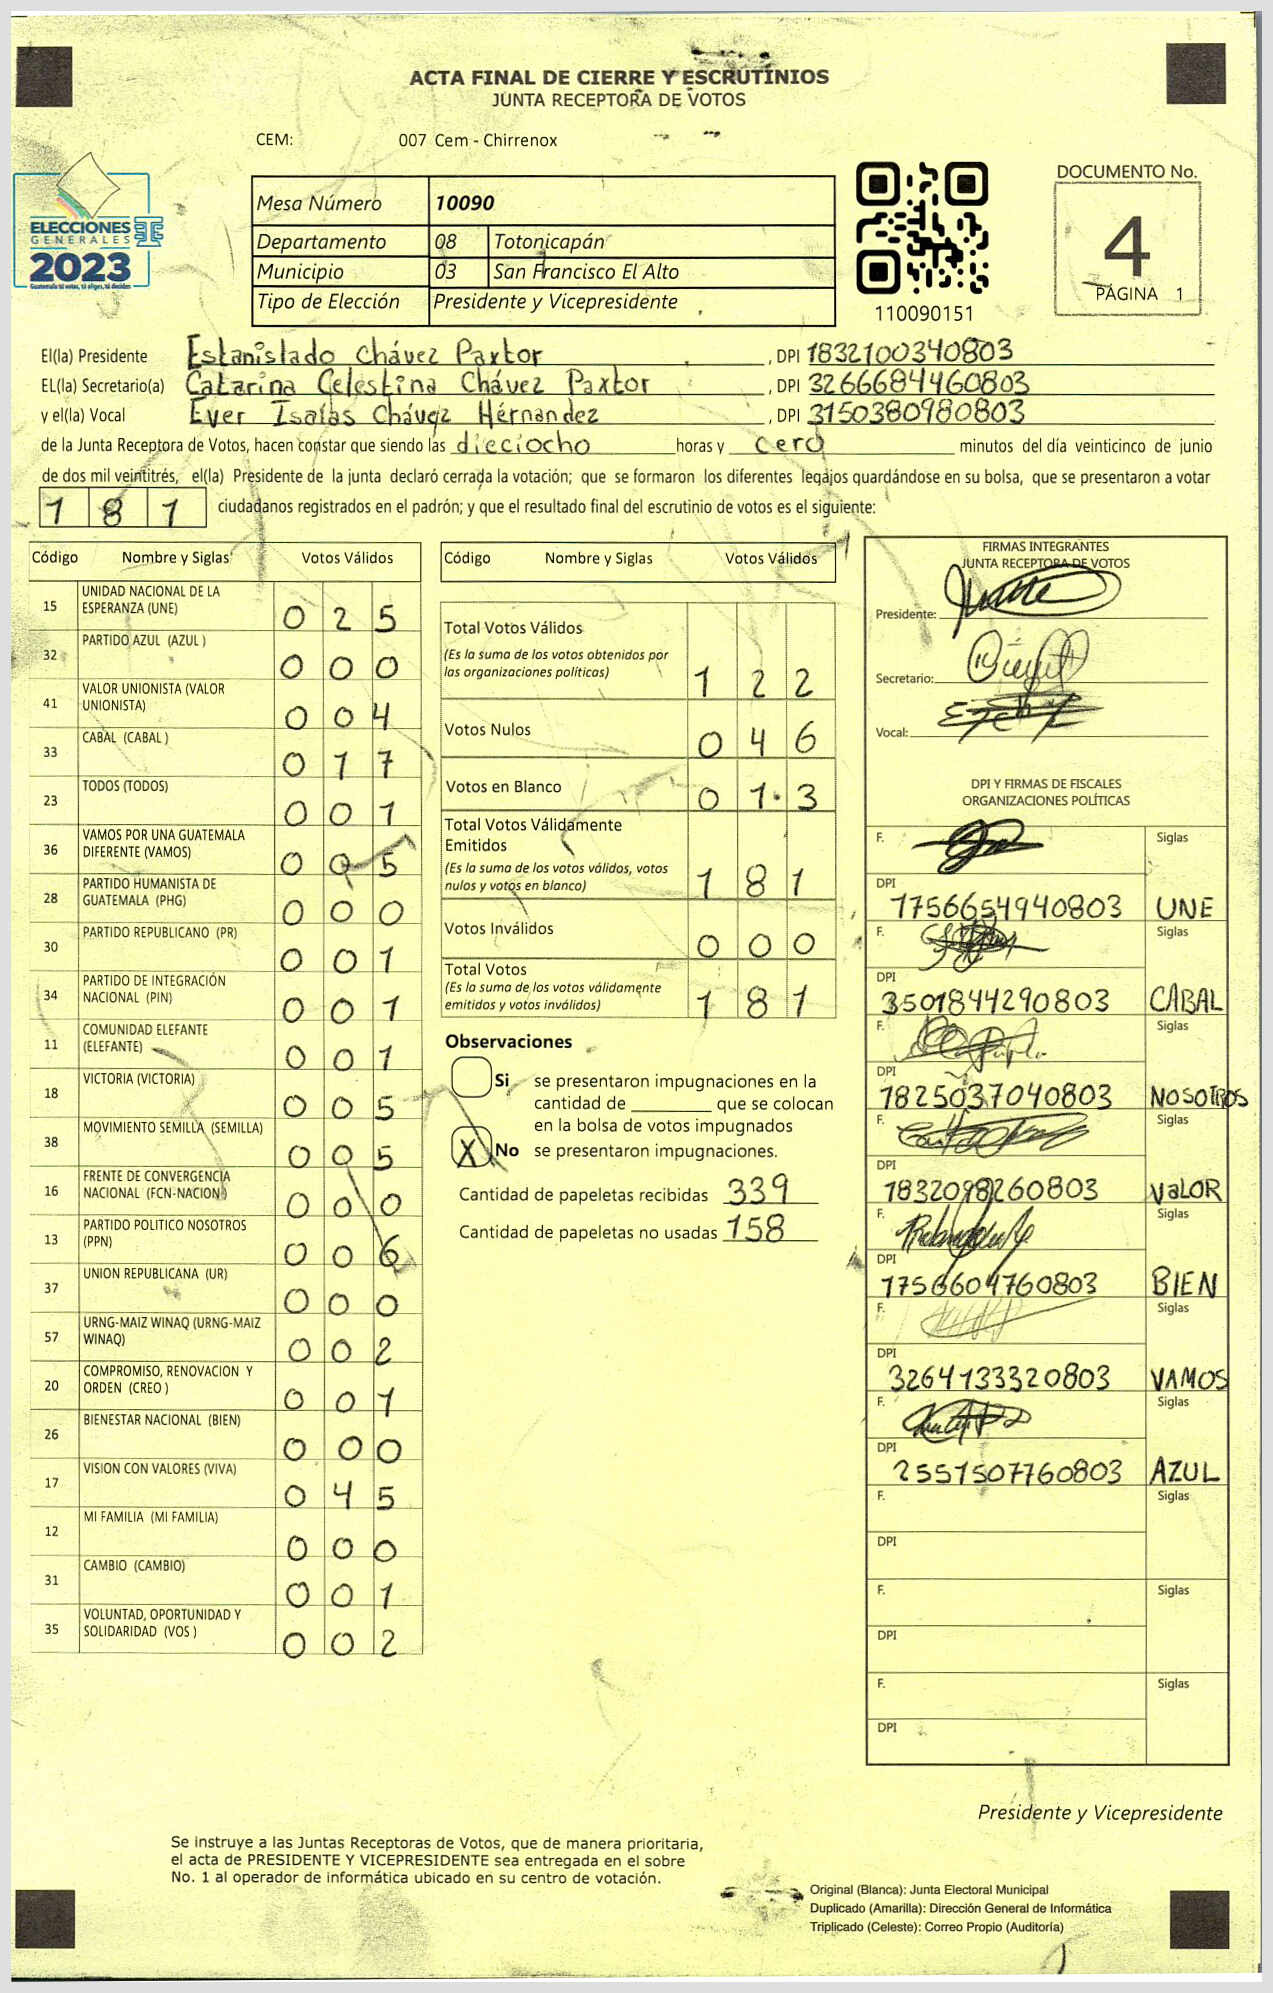 ACTA FINAL DE CIERRE Y ESCRUTINIOS
JUNTA RECEPTORA DE VOTOS
CEM: 007 Cem - Chirrenox
ELECCIONES
GENERALES
2023
Guatemala tú votas, tú eliges, tú decides
Mesa Número 10090
Departamento 08 Totonicapán
Municipio 03 San Francisco El Alto
Tipo de Elección Presidente y Vicepresidente
110090151
DOCUMENTO No.
4
PÁGINA 1
El(la) Presidente Estanislado Chávez Paxtor, DPI 1832100340803
EL(la) Secretario(a) Catarina Celestina Chávez Paxtor, DPI 3266684460803
y el(la) Vocal Ever Isaías Chávez Hérnandez, DPI 3150380980803
de la Junta Receptora de Votos, hacen constar que siendo las dieciocho horas y cero minutos del día veinticinco de junio
de dos mil veintitrés, el(la) Presidente de la junta declaró cerrada la votación; que se formaron los diferentes legajos guardándose en su bolsa, que se presentaron a votar
181 ciudadanos registrados en el padrón; y que el resultado final del escrutinio de votos es el siguiente:
Código Nombre y Siglas Votos Válidos
15 UNIDAD NACIONAL DE LA ESPERANZA (UNE) 025
32 PARTIDO AZUL (AZUL ) 000
41 VALOR UNIONISTA (VALOR UNIONISTA) 004
33 CABAL (CABAL ) 017
23 TODOS (TODOS) 001
36 VAMOS POR UNA GUATEMALA DIFERENTE (VAMOS) 005
28 PARTIDO HUMANISTA DE GUATEMALA (PHG) 000
30 PARTIDO REPUBLICANO (PR) 001
34 PARTIDO DE INTEGRACIÓN NACIONAL (PIN) 001
11 COMUNIDAD ELEFANTE (ELEFANTE) 001
18 VICTORIA (VICTORIA) 005
38 MOVIMIENTO SEMILLA (SEMILLA) 005
16 FRENTE DE CONVERGENCIA NACIONAL (FCN-NACION) 000
13 PARTIDO POLITICO NOSOTROS (PPN) 006
37 UNION REPUBLICANA (UR) 000
57 URNG-MAIZ WINAQ (URNG-MAIZ WINAQ) 002
20 COMPROMISO, RENOVACION Y ORDEN (CREO ) 001
26 BIENESTAR NACIONAL (BIEN) 000
17 VISION CON VALORES (VIVA) 045
12 MI FAMILIA (MI FAMILIA) 000
31 CAMBIO (CAMBIO) 001
35 VOLUNTAD, OPORTUNIDAD Y SOLIDARIDAD (VOS ) 002
Código Nombre y Siglas Votos Válidos
Total Votos Válidos
(Es la suma de los votos obtenidos por
las organizaciones políticas) 122
Votos Nulos 046
Votos en Blanco 013
Total Votos Válidamente
Emitidos
(Es la suma de los votos válidos, votos
nulos y votos en blanco) 181
Votos Inválidos 000
Total Votos
(Es la suma de los votos válidamente
emitidos y votos inválidos) 181
Observaciones
Si se presentaron impugnaciones en la
cantidad de ________ que se colocan
en la bolsa de votos impugnados
X No se presentaron impugnaciones.
Cantidad de papeletas recibidas 339
Cantidad de papeletas no usadas 158
FIRMAS INTEGRANTES
JUNTA RECEPTORA DE VOTOS
Presidente:
Secretario:
Vocal:
DPI Y FIRMAS DE FISCALES
ORGANIZACIONES POLÍTICAS
F. Siglas
DPI 1756654940803 UNE
F. Siglas
DPI 3501844290803 CABAL
F. Siglas
DPI 1825037040803 NOSOTROS
F. Siglas
DPI 1832098260803 VALOR
F. Siglas
DPI 1756604760803 BIEN
F. Siglas
DPI 3264133320803 VAMOS
F. Siglas
DPI 2551507760803 AZUL
F. Siglas
DPI
F. Siglas
DPI
F. Siglas
DPI
Presidente y Vicepresidente
Se instruye a las Juntas Receptoras de Votos, que de manera prioritaria,
el acta de PRESIDENTE Y VICEPRESIDENTE sea entregada en el sobre
No. 1 al operador de informática ubicado en su centro de votación.
Original (Blanca): Junta Electoral Municipal
Duplicado (Amarilla): Dirección General de Informática
Triplicado (Celeste): Correo Propio (Auditoría)